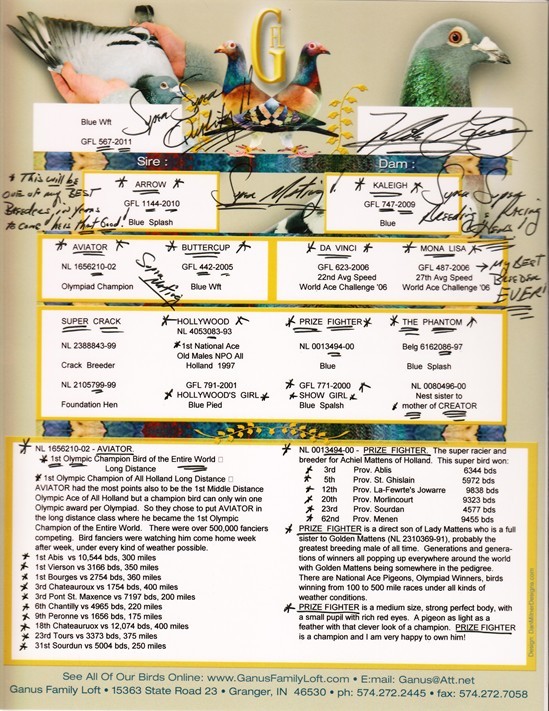 G H
Blue Wft
GFL 567-2011
Super Super
Quality!!
Sire :
Dam :
* This will be
one of my BEST
Breeders in years
to come! he is that Good!
ARROW
GFL 1144-2010
Blue Splash
Super Mating!
KALEIGH
GFL 747-2009
Blue
Super Super
Breeding & Racing
AVIATOR
NL 1656210-02
Olympiad Champion
Super
Mating
BUTTERCUP
GFL 442-2005
Blue Wft
DA VINCI
GFL 623-2006
22nd Avg Speed
World Ace Challenge '06
MONA LISA
GFL 487-2006
27th Avg Speed
World Ace Challenge '06
My BEST
Breeder
EVER!
SUPER CRACK
NL 2388843-99
Crack Breeder
NL 2105799-99
Foundation Hen
HOLLYWOOD
NL 4053083-93
*1st National Ace
Old Males NPO All
Holland 1997
GFL 791-2001
HOLLYWOOD'S GIRL
Blue Pied
PRIZE FIGHTER
NL 0013494-00
Blue
GFL 771-2000
SHOW GIRL
Blue Spalsh
THE PHANTOM
Belg 6162086-97
Blue Splash
NL 0080496-00
Nest sister to
mother of CREATOR
NL 1656210-02 - AVIATOR.
* 1st Olympic Champion Bird of the Entire World □
Long Distance
* 1st Olympic Champion of All Holland Long Distance □
AVIATOR had the most points also be the 1st Middle Distance
Olympic Ace of All Holland but a champion bird can only win one
Olympic award per Olympiad. So they chose to put AVIATOR in
the long distance class where he became the 1st Olympic
Champion of the Entire World. There were over 500,000 fanciers
competing. Bird fanciers were watching him come home week
after week, under every kind of weather possible.
1st Abis vs 10,544 bds, 300 miles
1st Vierson vs 3166 bds, 350 miles
1st Bourges vs 2754 bds, 360 miles
3rd Chateauroux vs 1754 bds, 400 miles
3rd Pont St. Maxence vs 7197 bds, 200 miles
6th Chantilly vs 4965 bds, 220 miles
9th Peronne vs 1656 bds, 175 miles
18th Chateauruox vs 12,074 bds, 400 miles
23rd Tours vs 3373 bds, 375 miles
31st Sourdun vs 5004 bds, 250 miles
NL 0013494-00 - PRIZE FIGHTER. The super racier and
breeder for Achiel Mattens of Holland. This super bird won:
3rd Prov. Ablis 6344 bds
5th Prov. St. Ghislain 5972 bds
12th Prov. La-Fewrte's Jowarre 9838 bds
20th Prov. Morlincourt 9323 bds
23rd Prov. Sourdan 4577 bds
62nd Prov. Menen 9455 bds
PRIZE FIGHTER is a direct son of Lady Mattens who is a full
sister to Golden Mattens (NL 2310369-91), probably the
greatest breeding male of all time. Generations and genera-
tions of winners all popping up everywhere around the world
with Golden Mattens being somewhere in the pedigree.
There are National Ace Pigeons, Olympiad Winners, birds
winning from 100 to 500 mile races under all kinds of
weather conditions.
PRIZE FIGHTER is a medium size, strong perfect body, with
a small pupil with rich red eyes. A pigeon as light as a
feather with that clever look of a champion. PRIZE FIGHTER
is a champion and I am very happy to own him!
See All Of Our Birds Online: www.GanusFamilyLoft.com • E:mail: Ganus@Att.net
Ganus Family Loft • 15363 State Road 23 • Granger, IN 46530 • ph: 574.272.2445 • fax: 574.272.7058